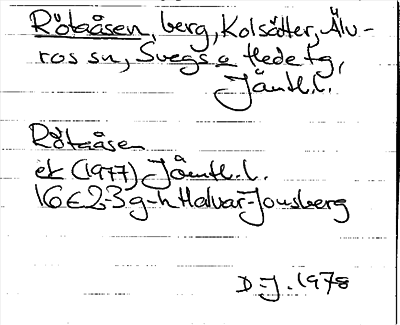 Rötaåsen, berg, Kolsätter, Älv-
ros sn, Svegs o Hede tg,
Jämtl.l.
Rötaåsen
ek (1977) Jämtl.l.
16E2-3g-h Halvar-Jonsberg
D-J. 1978